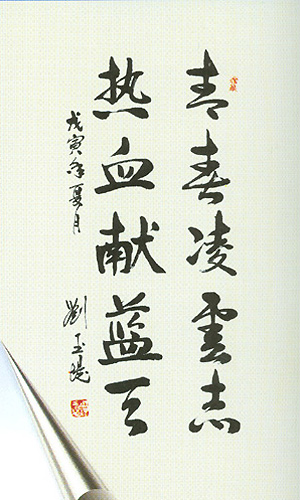 青春凌雲志
热血献蓝天
戊寅年夏月
劉玉堤